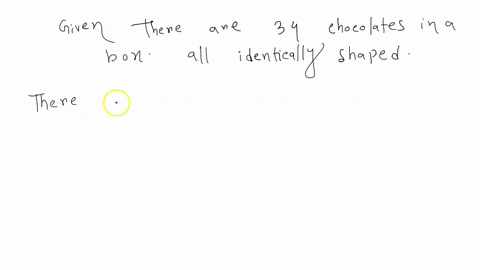 Given There are 34 chocolates in a
box. all identically shaped.
There